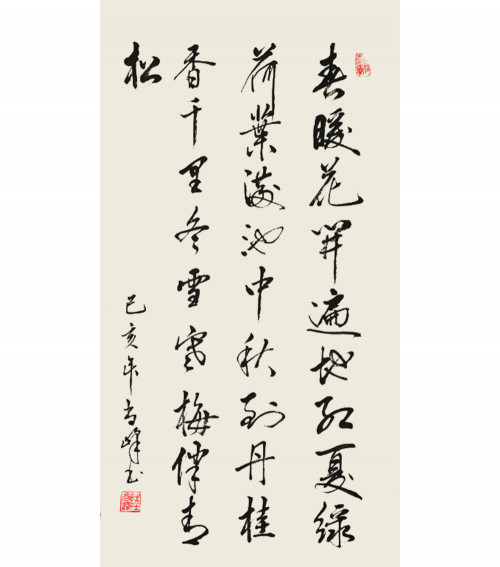 春暖花開遍地紅夏綠
荷葉滿池中秋到丹桂
香千里冬雪寒梅伴青
松
己亥年尚峰書